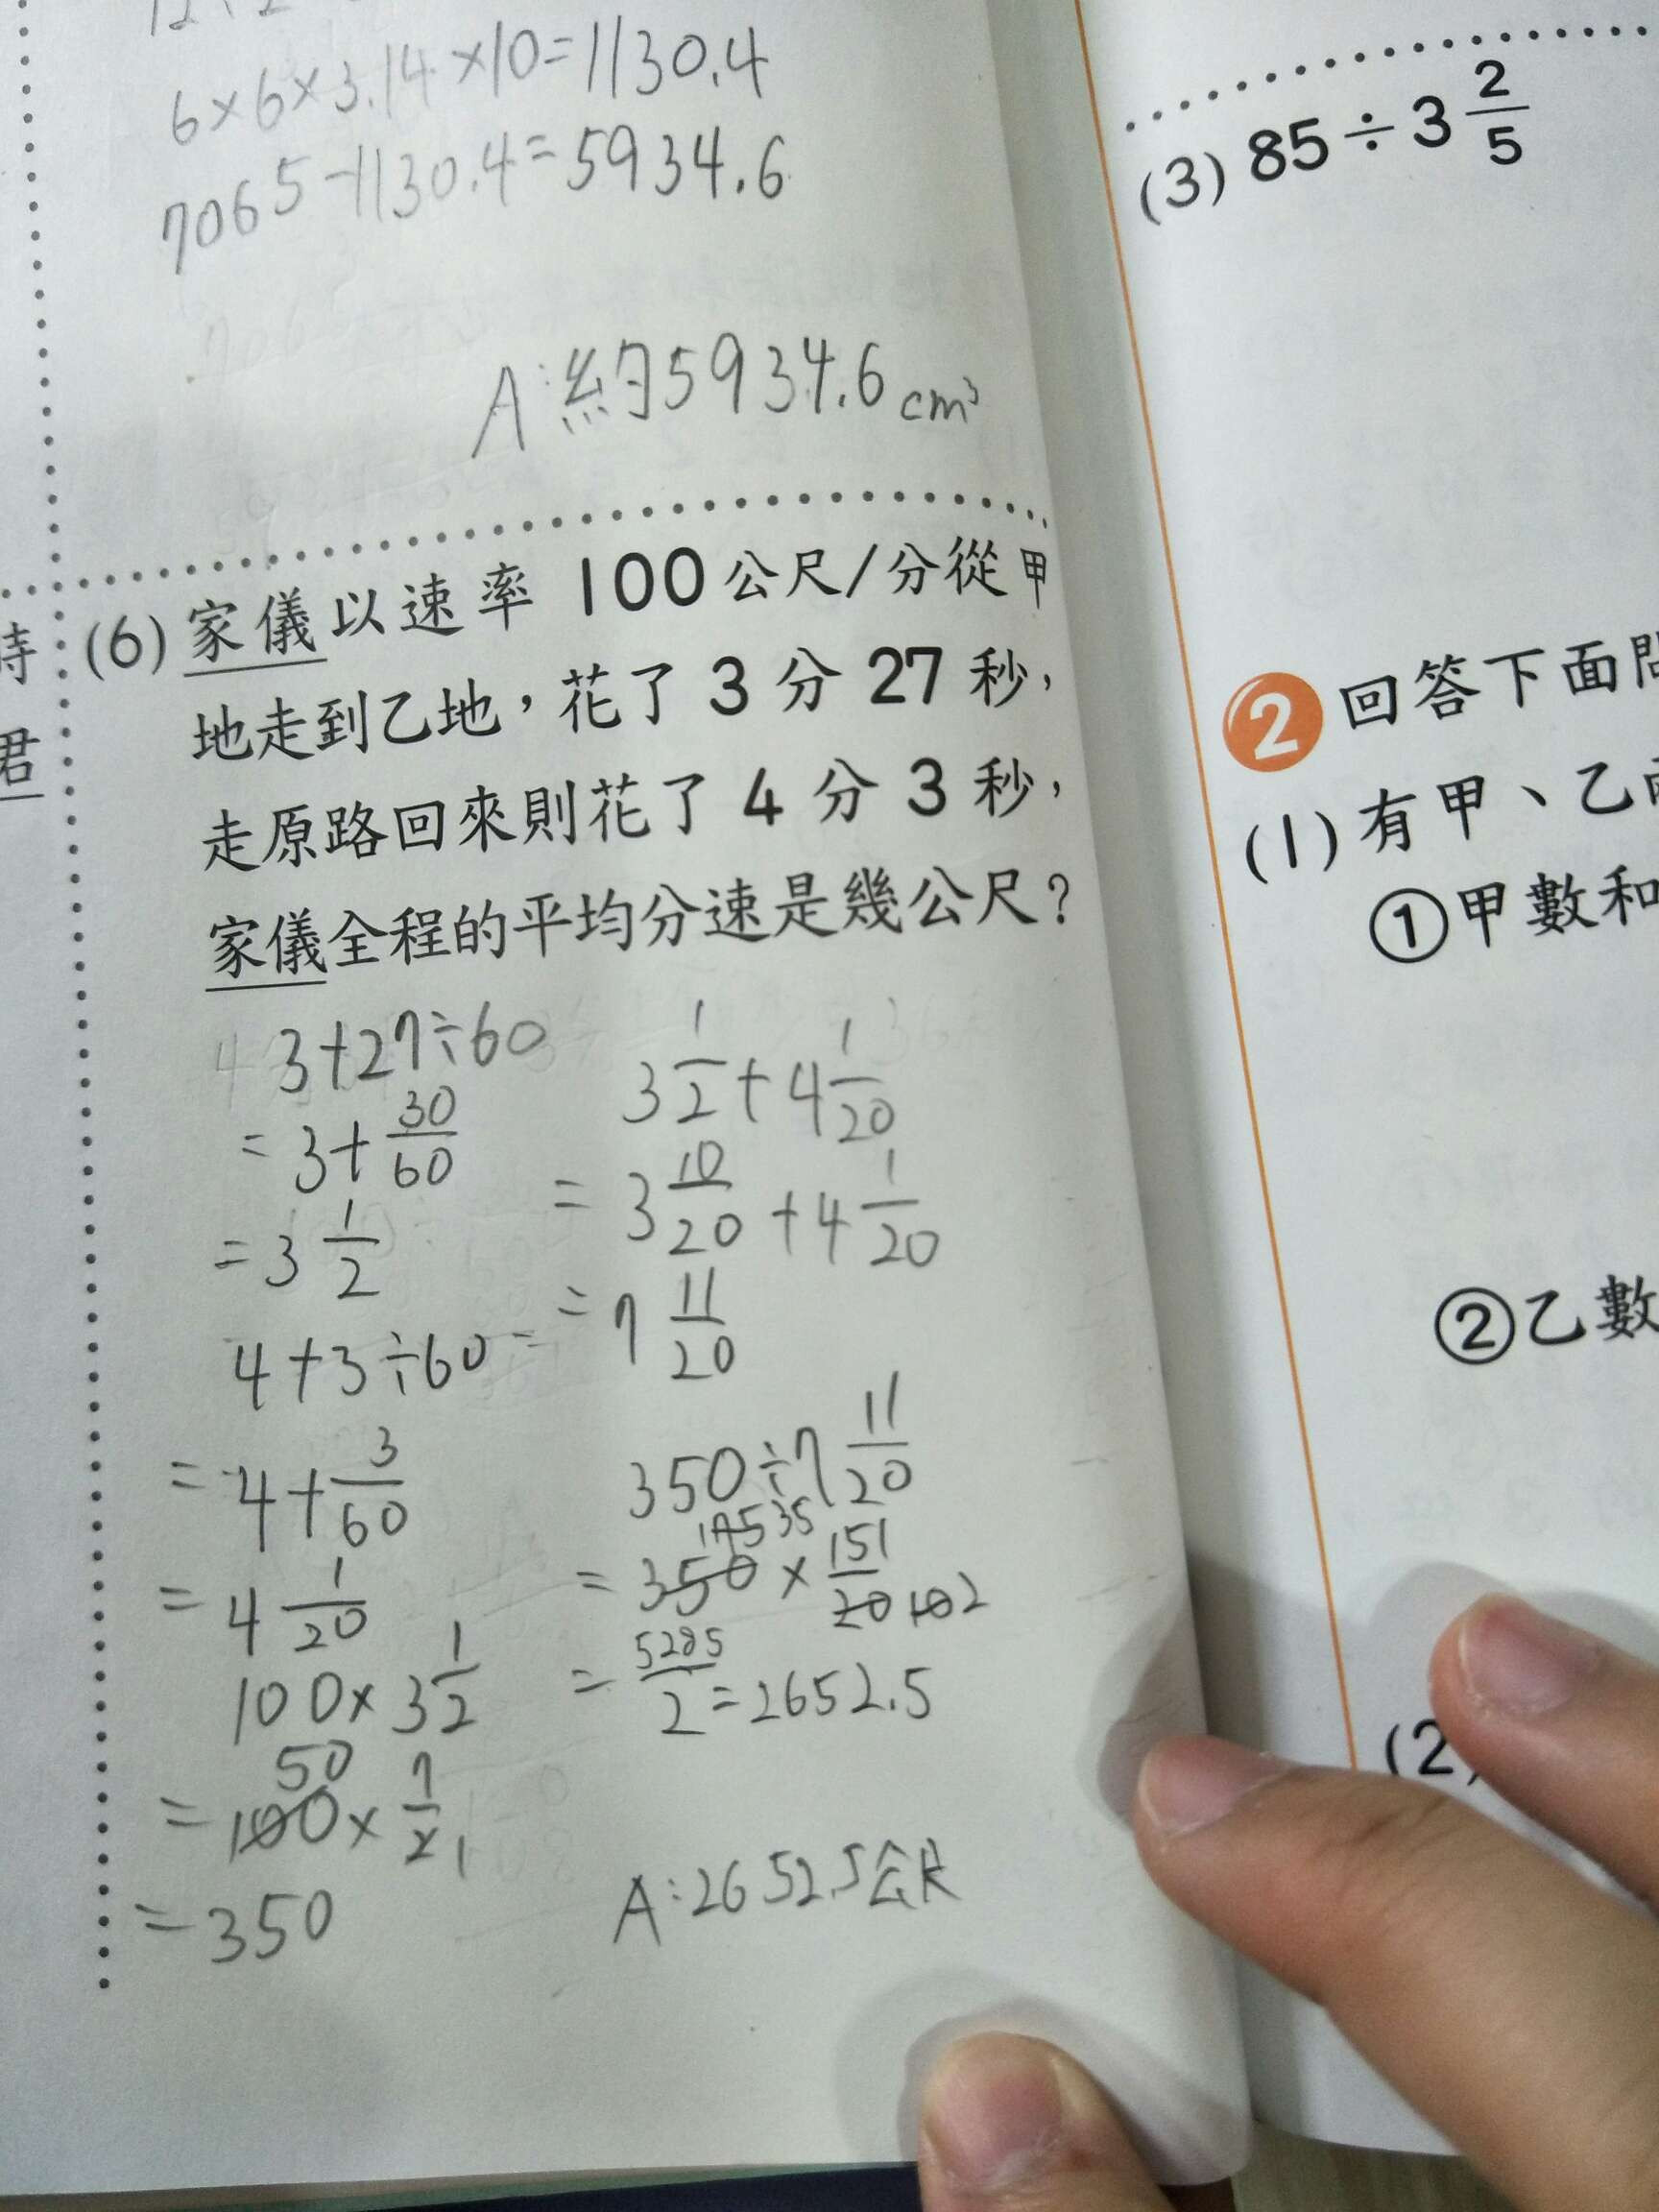 6×6×3.14×10=1130.4
7065-1130.4=5934.6
A:約5934.6cm³
(6)家儀以速率 100公尺/分從甲
地走到乙地，花了 3 分 27 秒，
走原路回來則花了 4 分 3 秒，
家儀全程的平均分速是幾公尺？
3+27÷60
=3+30/60
=3 1/2
4+3÷60=
=4+3/60
=4 1/20
100×3 1/2
=100×7/2 50 1
=350
3 1/2+4 1/20
=3 10/20+4 1/20
=7 11/20
350÷7 11/20
=350×151/20 175 35 10 2
=5285/2=2652.5
A:2652.5公尺
時
君
(3) 85÷3 2/5
2 回答下面問
(1)有甲、乙兩
①甲數和
②乙數
(2)